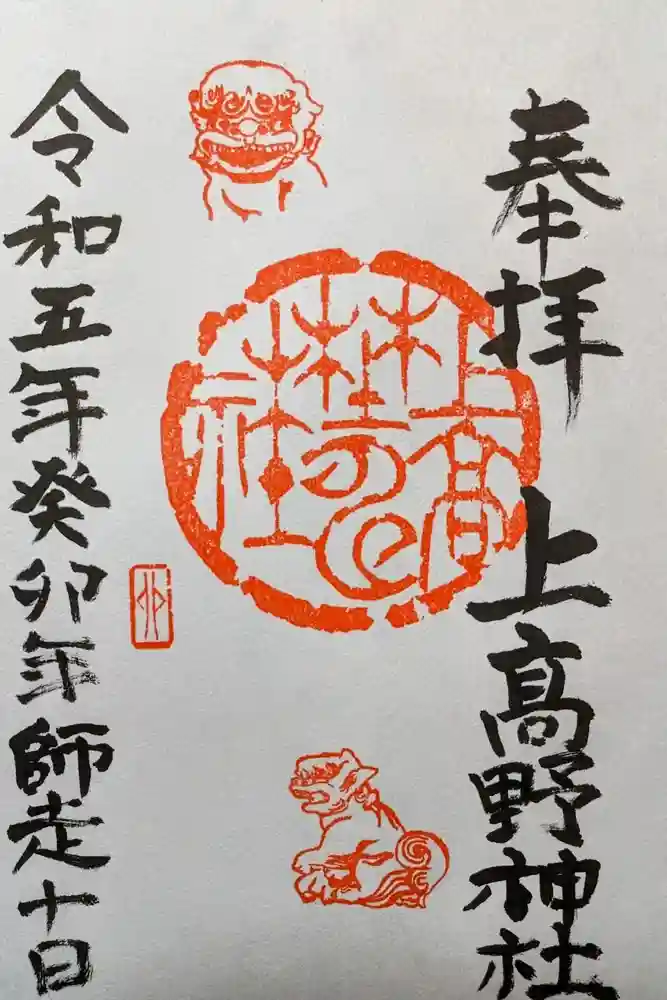 奉拝 上高野神社
上高
埜神
社
令和五年癸卯年師走十日
卯